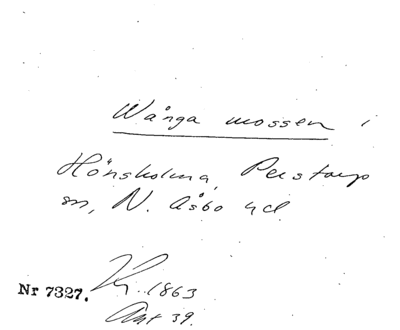 Wånga mossen i
Hönsholma, Perstorp
sn, N. Åsbo hd
Nr 7327. 1863
Ant 39.